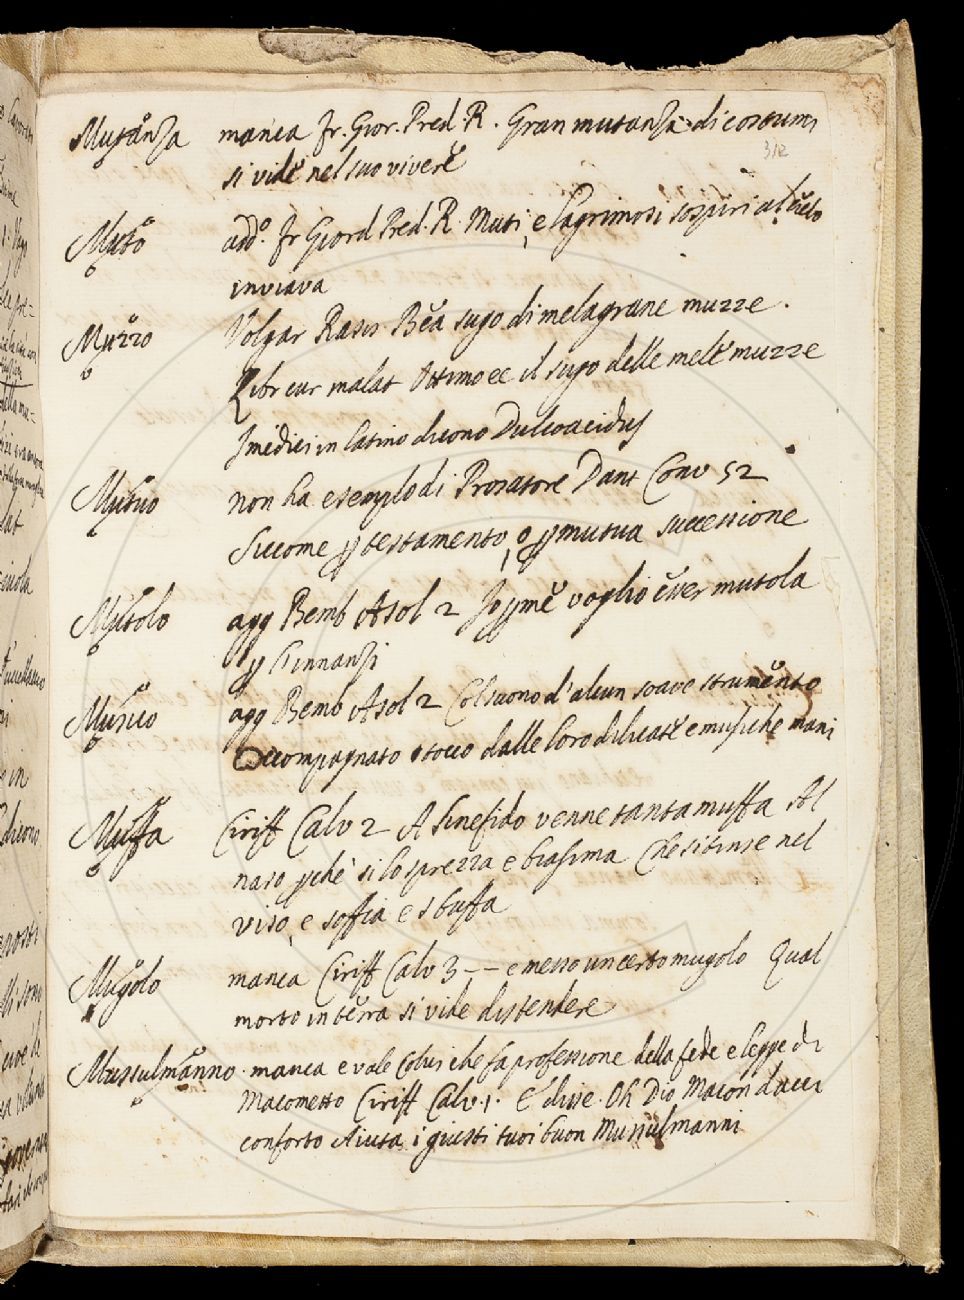 Mutanza manca Fr. Gior. Pred. R. Gran mutanza di costumi
312
si vide nel suo vivere
Muto add.o Fr Giord Pred. R. Muti, e lagrimosi sospiri al cielo
inviava
Muzzo Volgar Rasis Bea sugo di melagrane muzze.
Libr cur malat Ottimo ee il sugo delle mele muzze
I medici in latino dicono Dulcoacidus
Mutuo non ha esemplo di Prosatore Dant Conv 52
Siccome p testamento, o p mutua successione
Mutolo agg Bemb Asol 2 Io p me voglio esser mutola
p l innanzi
Musico agg Bemb Asol 2 Col suono d'alcun soave strumento
Accompagnato o tocco dalle loro dilicate e musiche mani
Muffa Ciriff Calv 2 A Sinefido venne tanta muffa Al
naso pchè si lo sprezza e biasima Che si tinse nel
viso, e soffia e sbuffa
Mugolo manca Ciriff Calv 3 -- e messo un certo mugolo Qual
morto in terra si vide distendere
Mussulmanno manca e vale Colui che fa professione della fede e legge di
Macometto Ciriff Calv. 1. E disse. Oh Dio Macon dacci
conforto Aiuta i giusti tuoi buon Mussulmanni